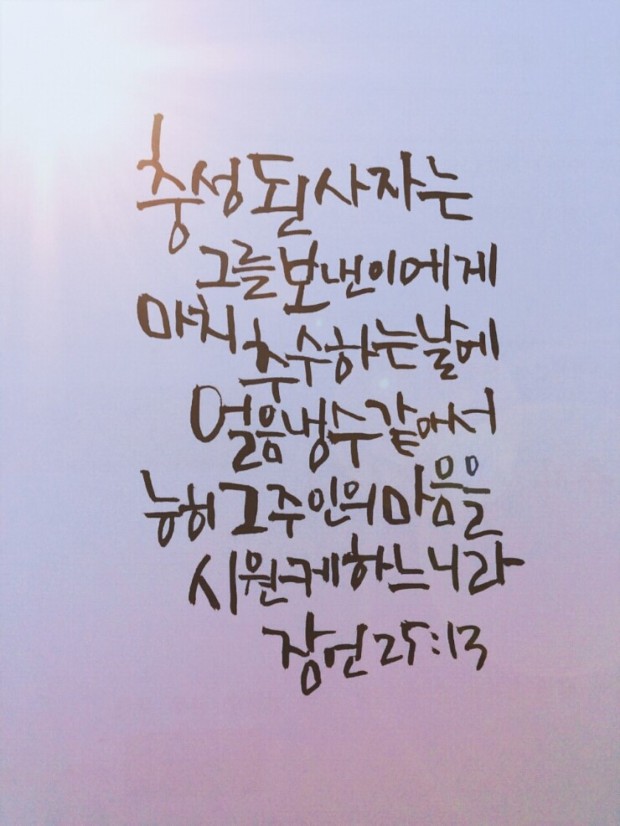 충성된 사자는
그를 보낸 이에게
마치 추수하는 날에
얼음냉수 같아서
능히 그 주인의 마음을
시원케 하느니라
잠언 25:13